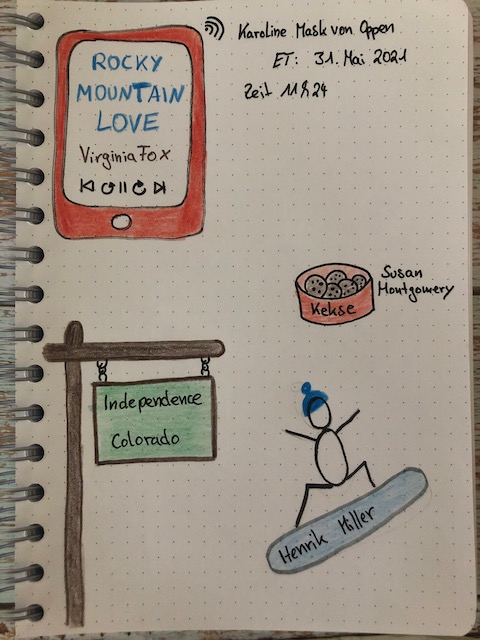 ROCKY
MOUNTAIN
LOVE
Virginia Fox
Karoline Mask von Oppen
ET: 31. Mai 2021
Zeit 11h24
Susan
Montgomery
Kekse
Independence
Colorado
Henrik Miller